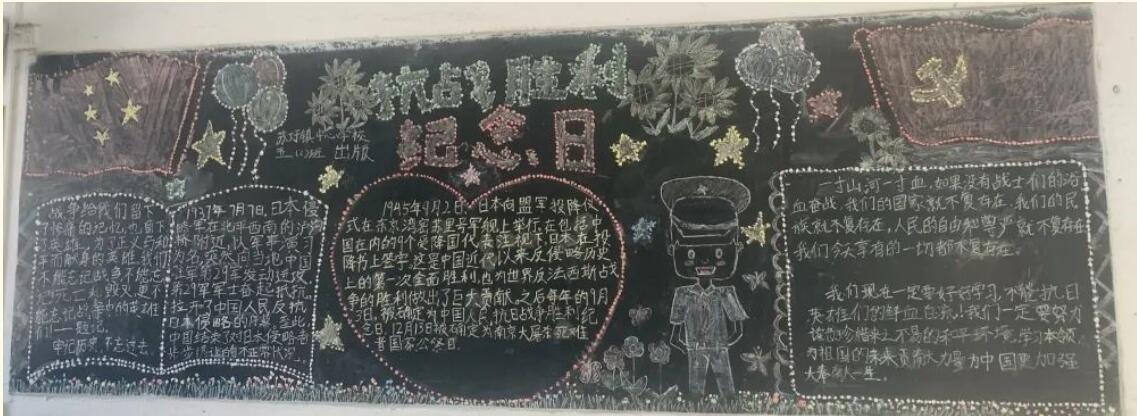 抗战胜利
纪念日
中心学校
出版
战争给我们留下
了惨痛的记忆,也留下
了英雄。为正义与和
平而献身的英雄,我们
不能忘记战争不能忘
记死亡和毁灭,更不
能忘记战争中的英雄
们——题记。
牢记历史,不忘过去
1937年7月7日,日本侵
略军在北平西南的卢沟
桥附近,以军事演习
为名,突然向当地中国
驻军第29军发动进攻,
第29军军士奋起抵抗,
拉开了中国人民反抗
日本侵略的序幕,至此
中国结束了对日本侵略者
步步退让的不正常状况
1945年9月2日,日本向盟军投降仪
式在东京湾密苏里号军舰上举行,在包括中
国在内的9个受降国代表注视下,日本在投
降书上签字,这是中国近代以来反侵略历史
上的第一次全面胜利,也为世界反法西斯战
争的胜利做出了巨大贡献,之后每年的9月
3日,被确定为中国人民抗日战争胜利纪
念日,12月13日被确定为南京大屠杀死难
者国家公祭日
一寸山河一寸血,如果没有战士们的浴
血奋战,我们的国家就不复存在,我们的民
族就不复存在,人民的自由和尊严就不复存在
我们今天享有的一切都不复存在。
我们现在一定要好好学习,不能抗日
英雄们的鲜血白流!我们一定要努力
珍惜来之不易的和平环境,学习本领,
为祖国的未来贡献力量,为中国更加强
大奉献一生。